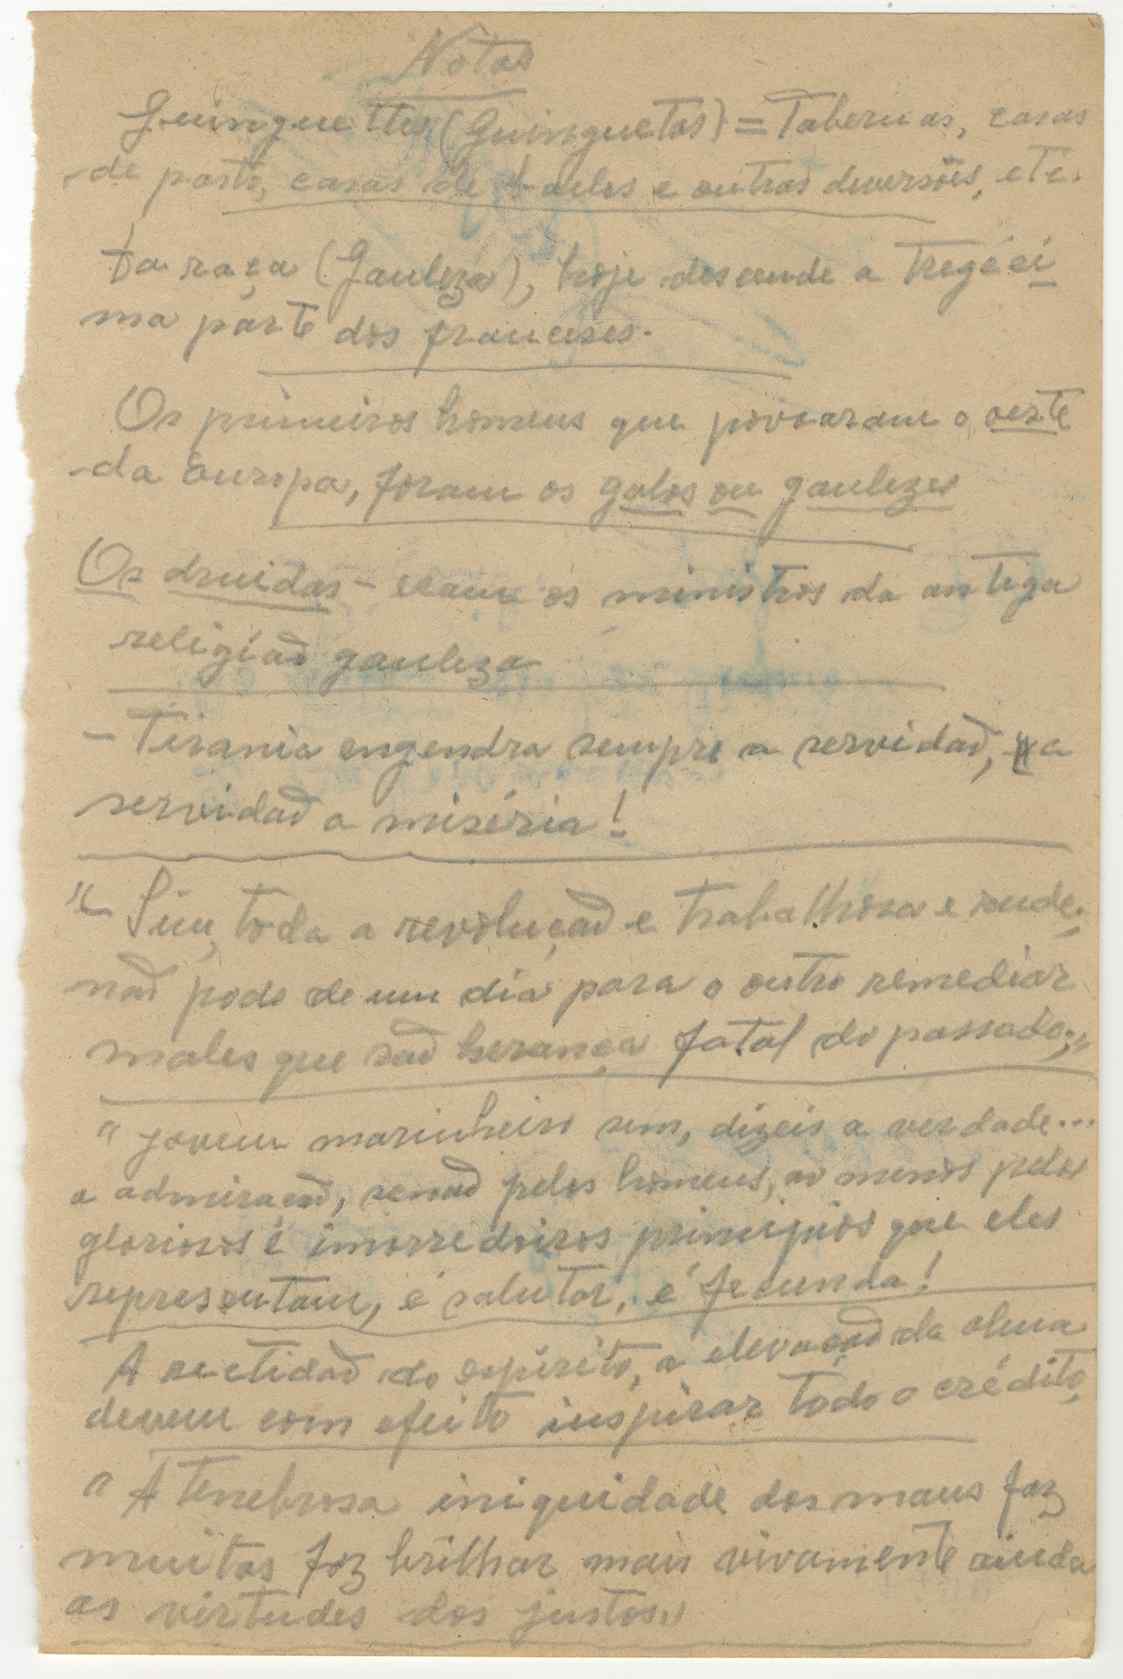 Notas
Guinguettes (Guinguetas) = Tabernas, casas
de pasto, casas de bailes e outras diversões, etc.
Da raça (Gauleza), hoje descende a tregéci
ma parte dos francêses.
Os primeiros homens que povoaram o oeste
da Europa, foram os galos ou gaulezes
Os druidas - eram os ministros da antiga
religiaõ gauleza
- Tirania engendra sempre a servidaõ, a
servidaõ a miséria!
"Sim, toda a revoluçaõ e trabalhosa e rude;
naõ pode de um dia para o outro remediar
males que saõ herança fatal do passado;"
"Jovem marinheiro sim, dizeis a verdade...
a admiraçaõ, senaõ pelos homens, ao menos pelos
gloriosos é imorredoiros principios que eles
representam, é salutar, é fecunda!
A rectidaõ do espírito, a elevaçaõ da alma
devem com efeito inspirar todo o crédito,
"A tenebrosa iniquidade dos maus faz
muitas foz brilhar mais vivamente ainda
as virtudes dos justos"